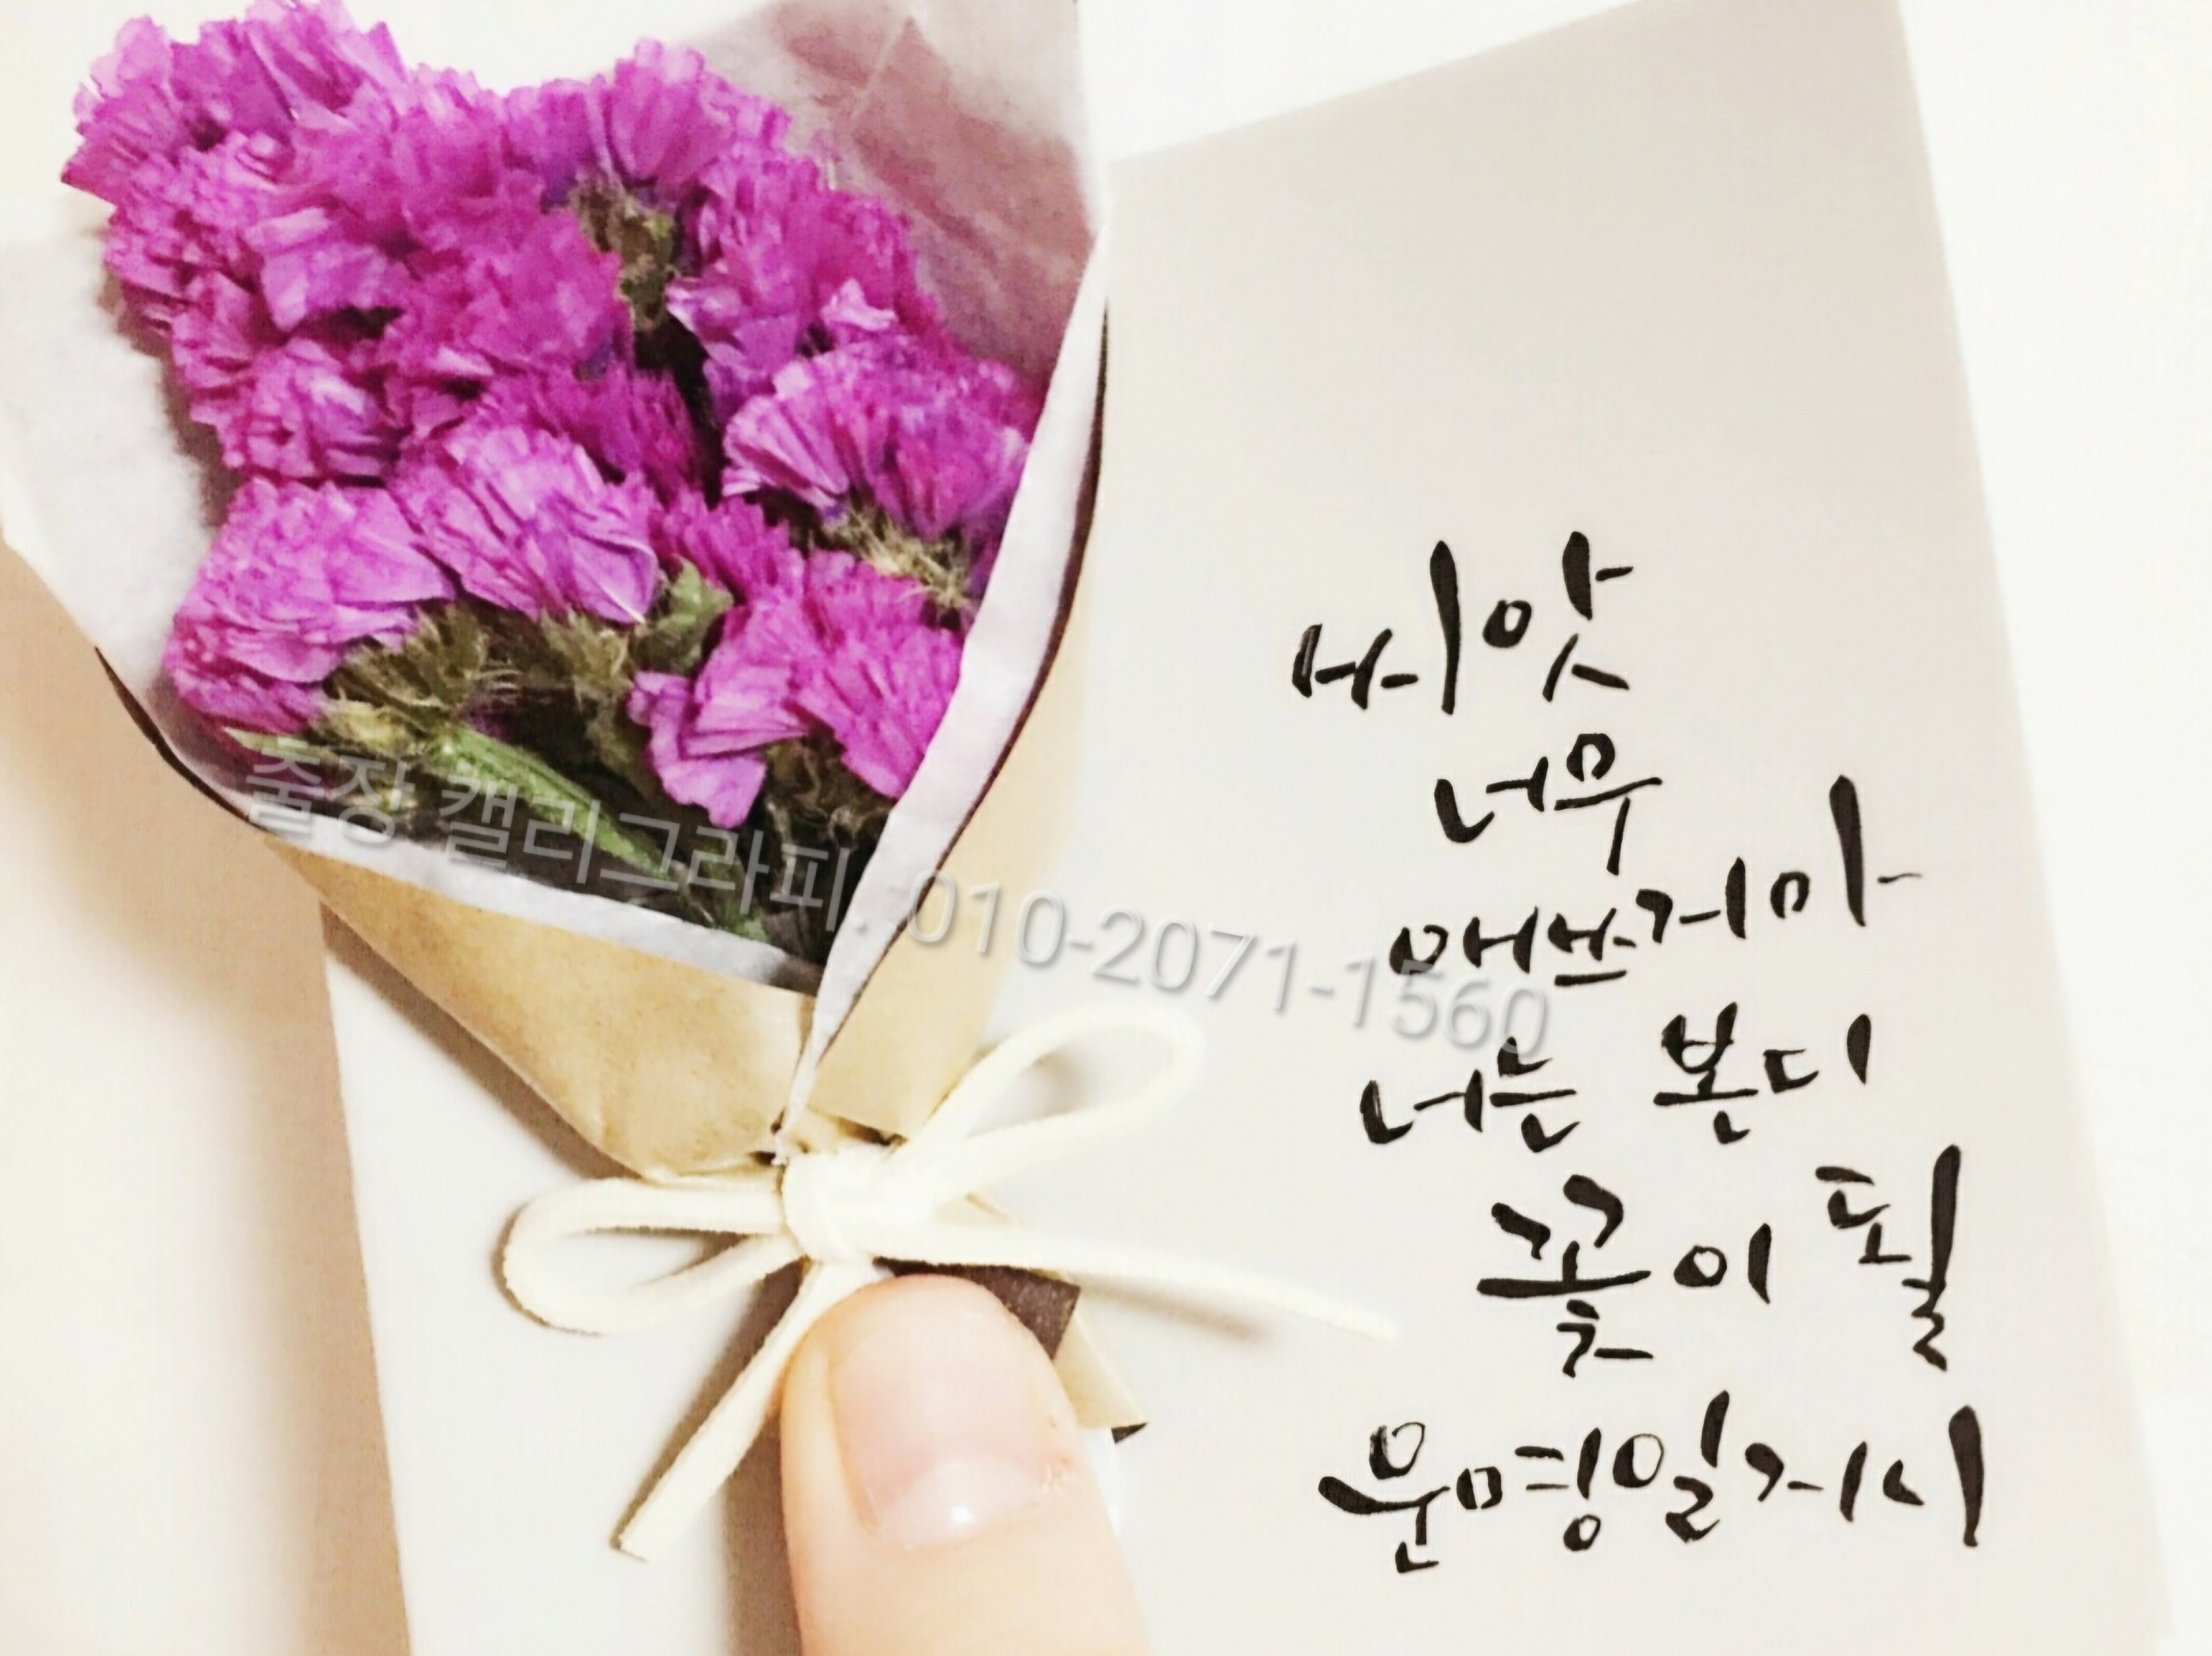 씨앗
너무
애쓰지마
너는 본디
꽃이 필
운명일지니
출장 캘리그라피. 010-2071-1560